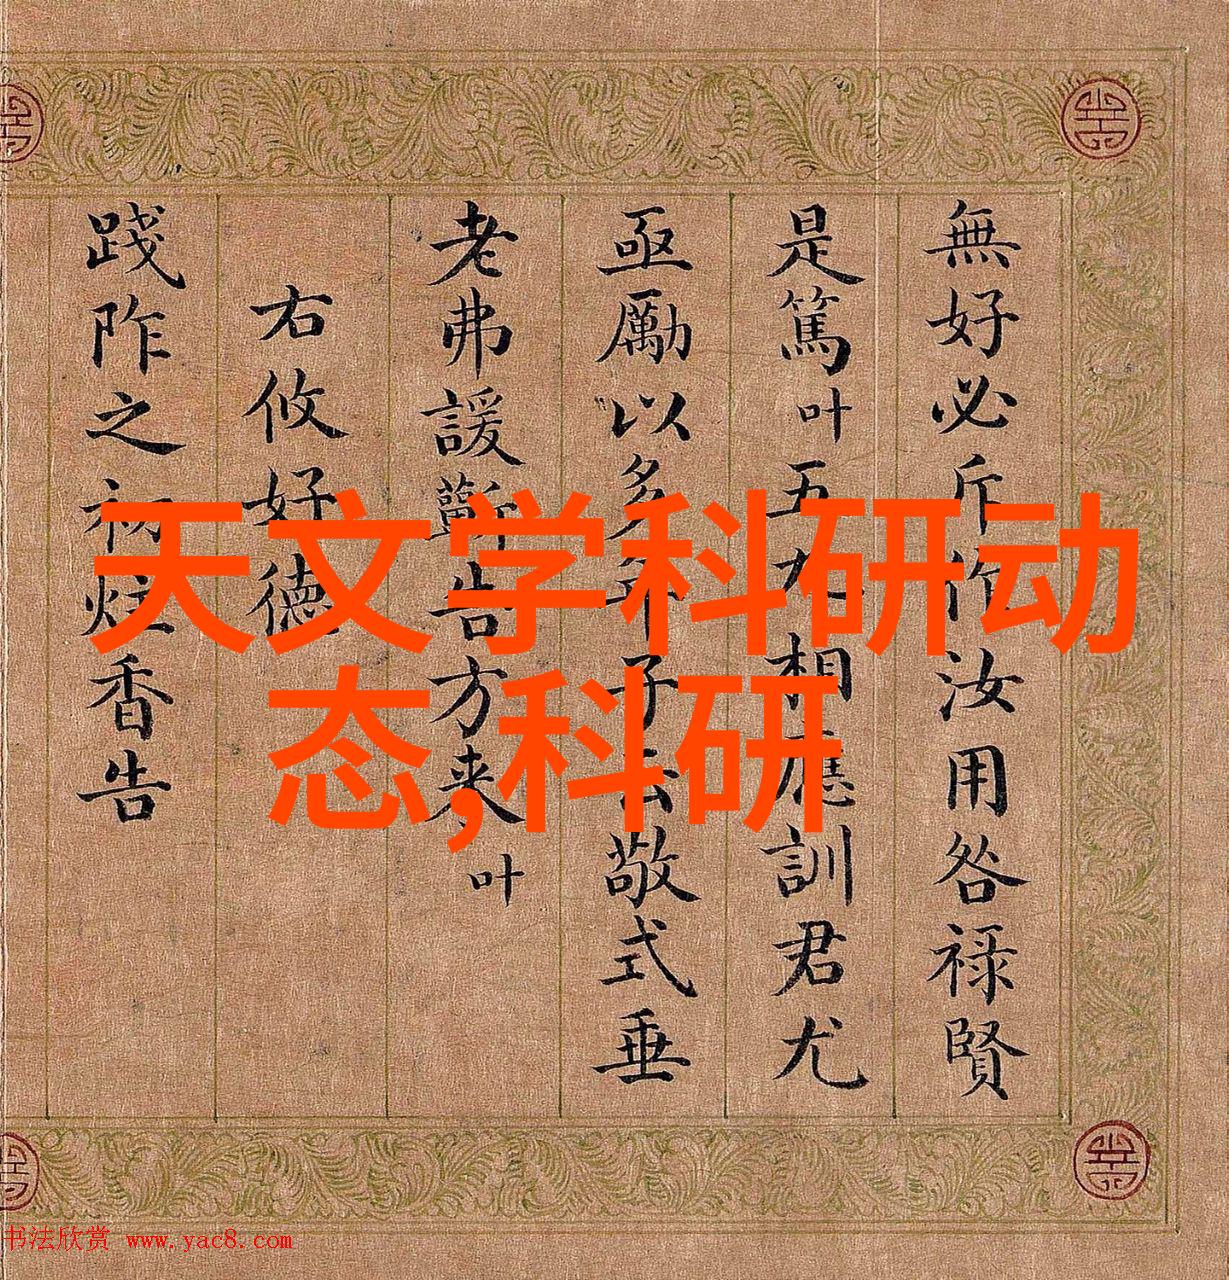 天文学科研动
态,科研
無好必斥作汝用咎禄賢
是篤叶五九相應訓君尤
亟勵以多年子云敬式垂
老弗諼蘄告方来叶
右攸好德
践阼之初炷香告
书法欣赏 www.yac8.com